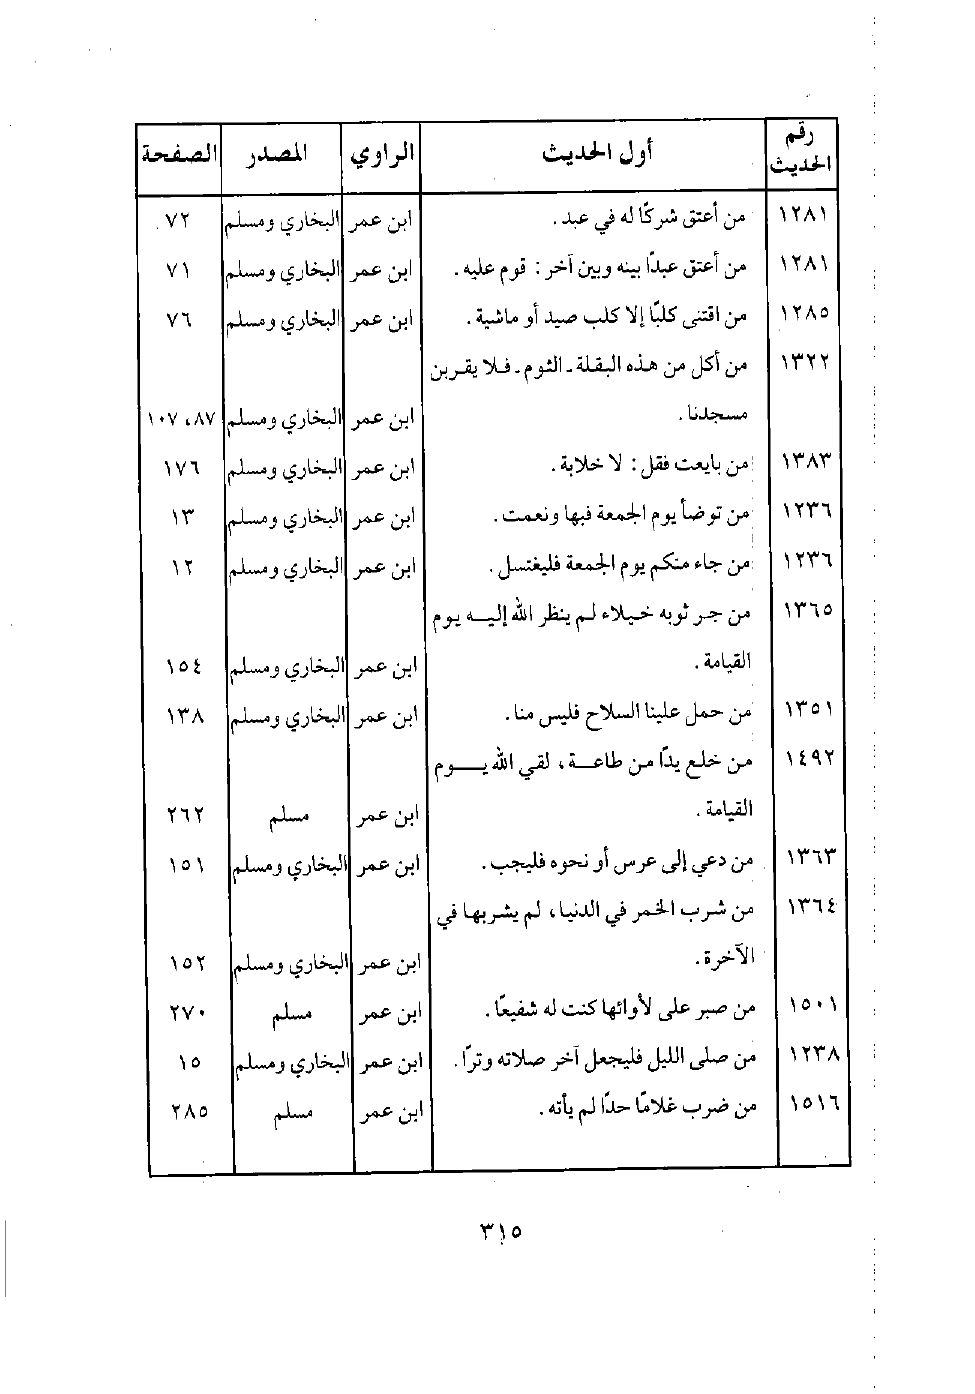 رقم الحديث | أول الحديث | الراوي | المصدر | الصفحة
١٢٨١ | من أعتق شركًا له في عبد . | ابن عمر | البخاري ومسلم | ٧٢
١٢٨١ | من أعتق عبدًا بينه وبين آخر : قوم عليه . | ابن عمر | البخاري ومسلم | ٧١
١٢٨٥ | من اقتنى كلبًا إلا كلب صيد أو ماشية . | ابن عمر | البخاري ومسلم | ٧٦
١٣٢٢ | من أكل من هذه البقلة ـ الثوم ـ فلا يقربن
مسجدنا . | ابن عمر | البخاري ومسلم | ٨٧ ، ١٠٧
١٣٨٣ | من بايعت فقل : لا خلابة . | ابن عمر | البخاري ومسلم | ١٧٦
١٢٣٦ | من توضأ يوم الجمعة فبها ونعمت . | ابن عمر | البخاري ومسلم | ١٣
١٢٣٦ | من جاء منكم يوم الجمعة فليغتسل . | ابن عمر | البخاري ومسلم | ١٢
١٣٦٥ | من جر ثوبه خيلاء لم ينظر الله إليه يوم
القيامة . | ابن عمر | البخاري ومسلم | ١٥٤
١٣٥١ | من حمل علينا السلاح فليس منا . | ابن عمر | البخاري ومسلم | ١٣٨
١٤٩٢ | من خلع يدًا من طاعة ، لقي الله يوم
القيامة . | ابن عمر | مسلم | ٢٦٢
١٣٦٣ | من دعي إلى عرس أو نحوه فليجب . | ابن عمر | البخاري ومسلم | ١٥١
١٣٦٤ | من شرب الخمر في الدنيا ، لم يشربها في
الآخرة . | ابن عمر | البخاري ومسلم | ١٥٢
١٥٠١ | من صبر على لأوائها كنت له شفيعًا . | ابن عمر | مسلم | ٢٧٠
١٢٣٨ | من صلى الليل فليجعل آخر صلاته وترًا . | ابن عمر | البخاري ومسلم | ١٥
١٥١٦ | من ضرب غلامًا حدًا لم يأته . | ابن عمر | مسلم | ٢٨٥
٣١٥